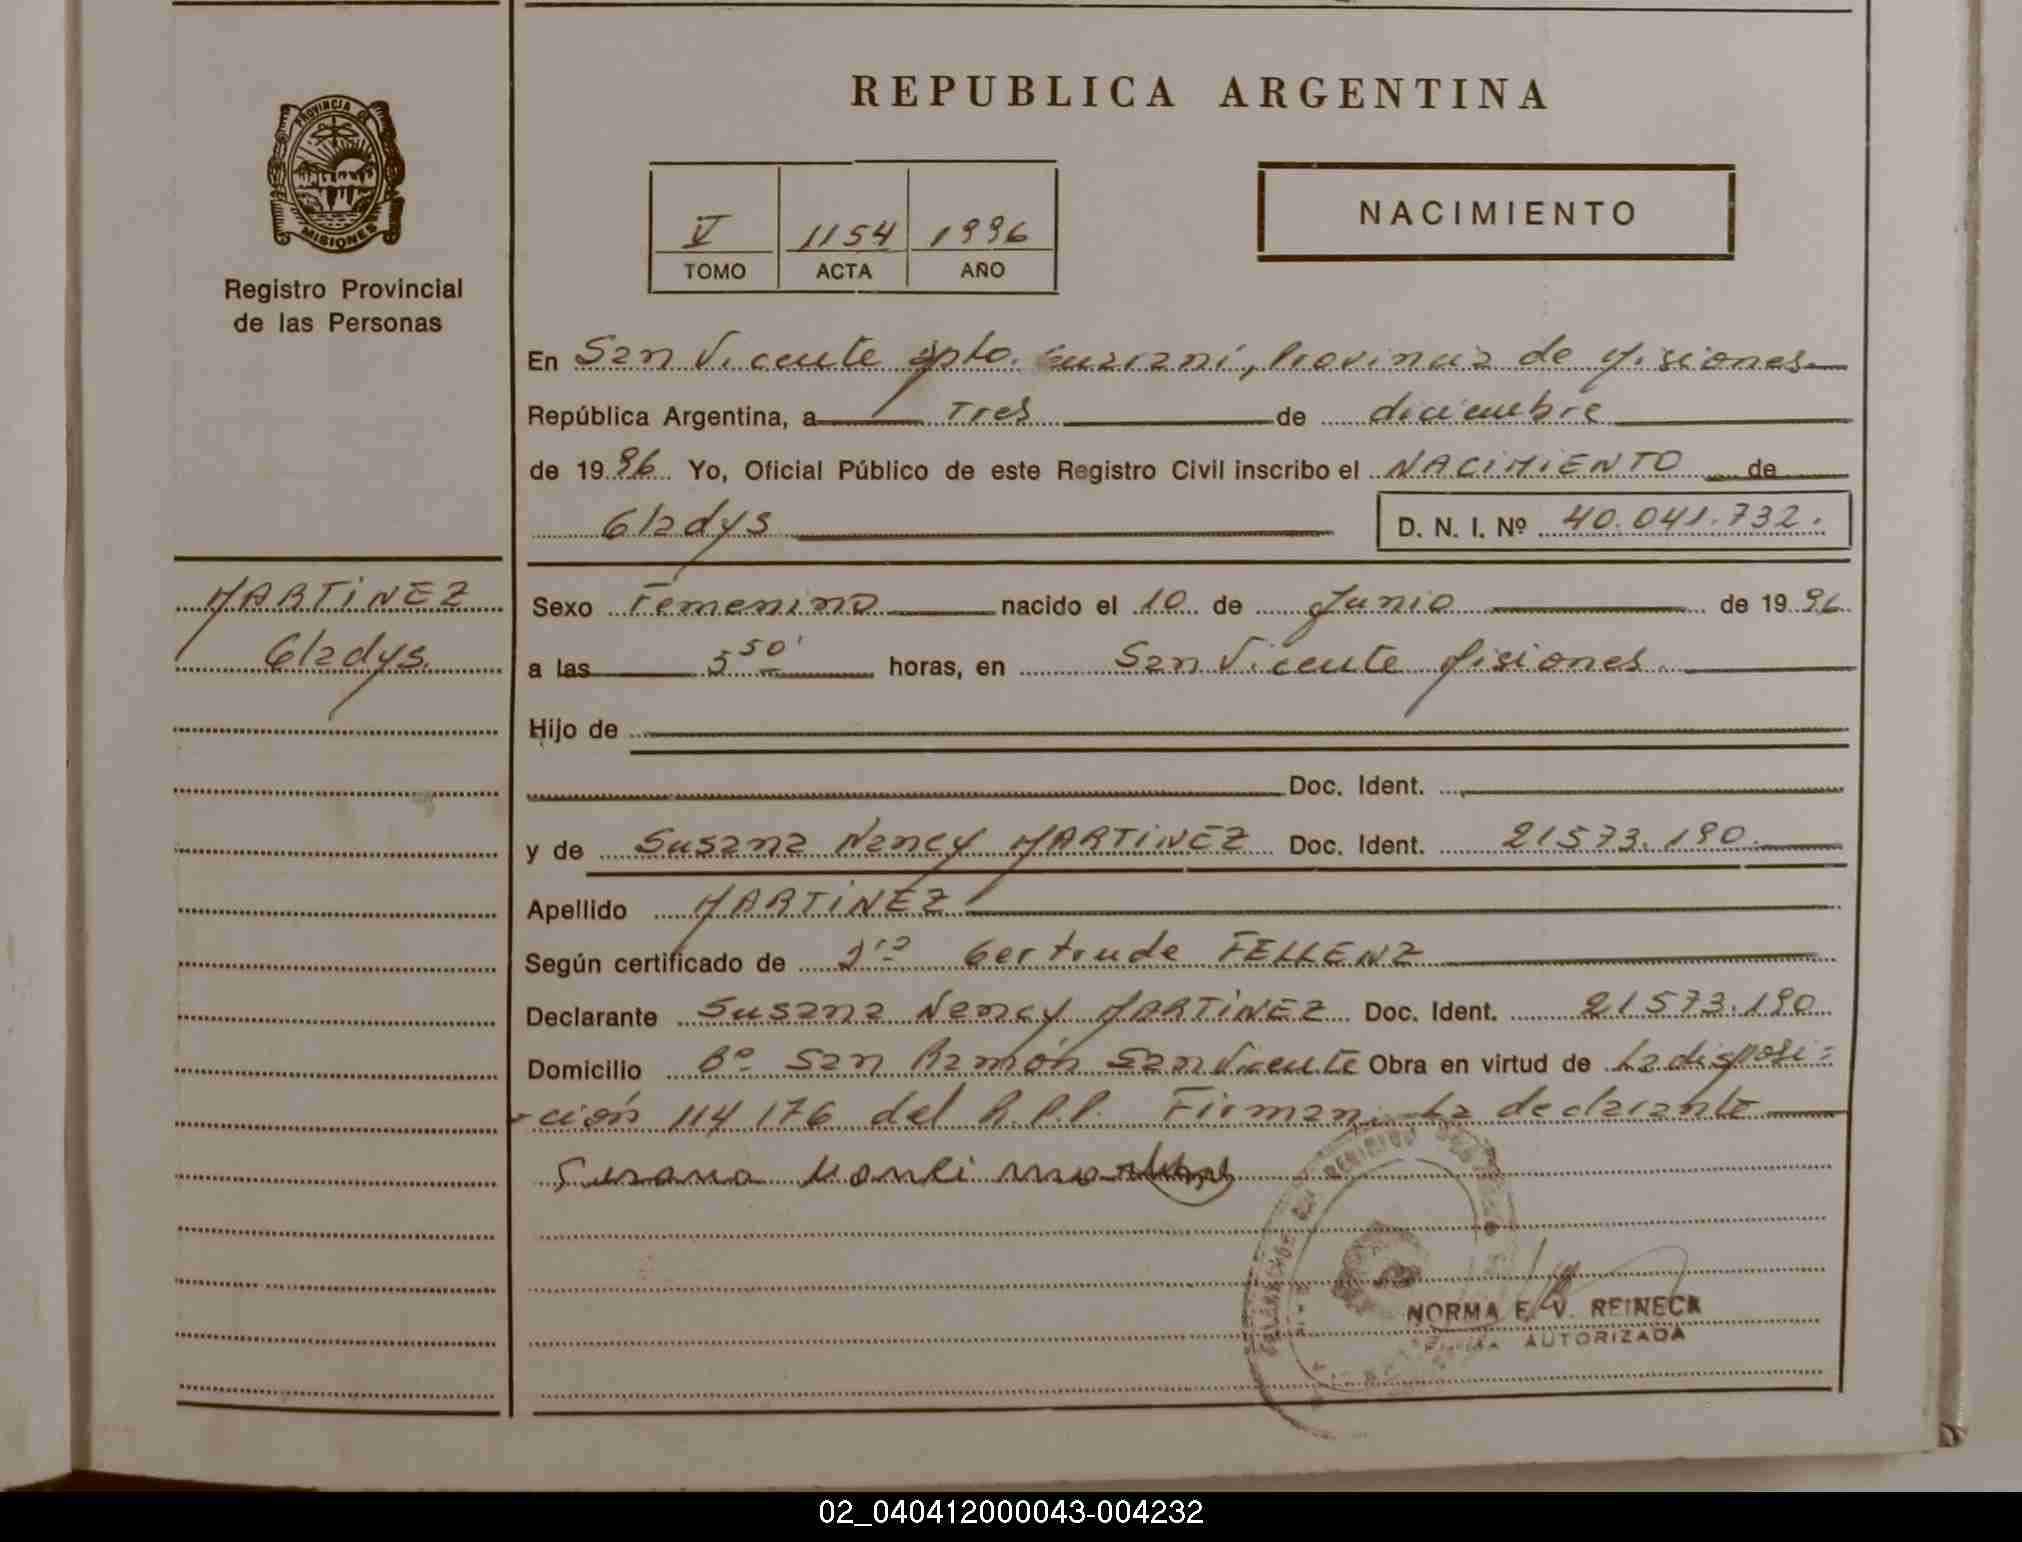 REPUBLICA ARGENTINA
PROVINCIA DE
MISIONES
Registro Provincial
de las Personas
V 1154 1996
TOMO ACTA AÑO
NACIMIENTO
En San Vicente Dpto. Guaraní, Provincia de Misiones
República Argentina, a Tres de diciembre
de 1996 Yo, Oficial Público de este Registro Civil inscribo el NACIMIENTO de
Gladys D. N. I. Nº 40.041.732.
MARTINEZ
Gladys
Sexo Femenino nacido el 10 de Junio de 1996
a las 5 50' horas, en San Vicente Misiones
Hijo de
Doc. Ident.
y de Susana Nancy MARTINEZ Doc. Ident. 21573.190
Apellido MARTINEZ
Según certificado de Gertrude FELLENZ
Declarante Susana Nancy MARTINEZ Doc. Ident. 21573.190
Domicilio Bº San Ramón San Vicente Obra en virtud de La disposi=
ción 114 176 del R.P.P. Firman: La declarante
Susana
NORMA E. V. REINECK
AUTORIZADA
02_040412000043-004232